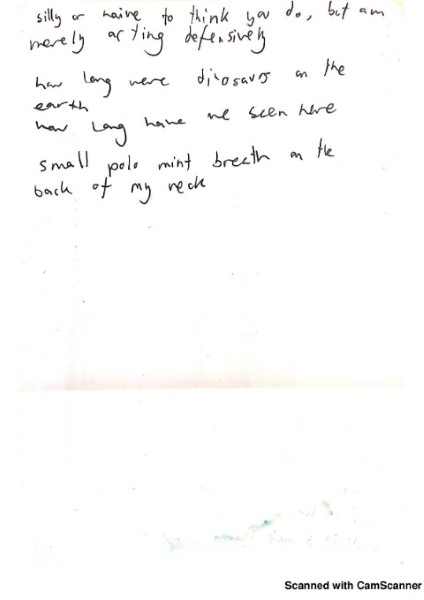 silly or naive to think you do, but am
merely acting defensively
how long were dinosaurs on the
earth
how long have we been here
small polo mint breath on the
back of my neck
Scanned with CamScanner